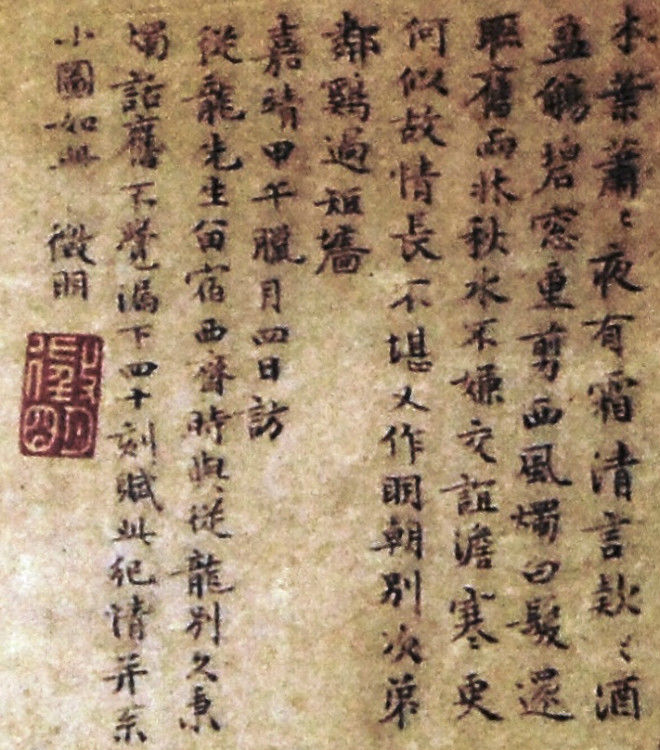 木葉蕭〻夜有霜清言款〻酒
盈觴碧窓重剪西風燭白髮還
聯舊雨牀秋水不嫌交誼澹寒更
何似故情長不堪又作明朝別次第
鄰鷄過短墻
嘉靖甲午臘月四日訪
從龍先生留宿西齋時與從龍別久秉
燭話舊不覺漏下四十刻賦此紀情并系
小圖如此 徵明
徵明